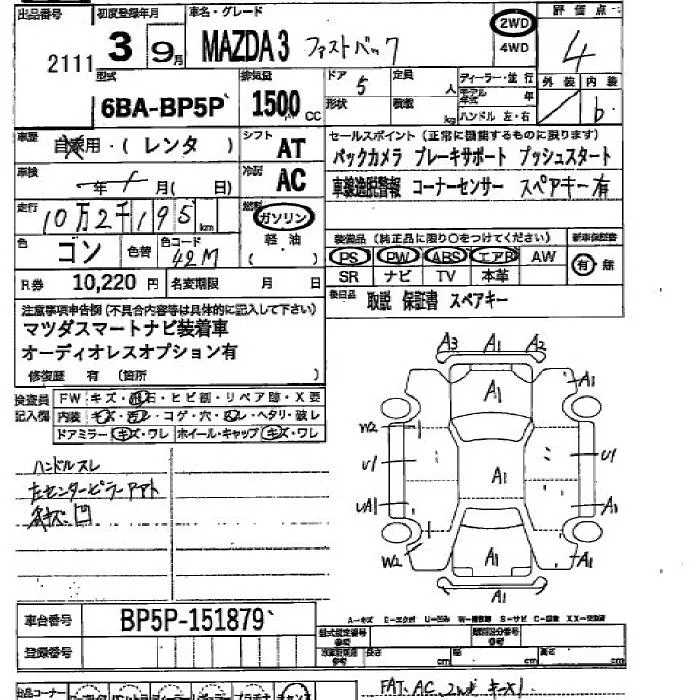 出品番号 初度登録年月 車名・グレード 評価点
2111 3 9月 MAZDA3 ファストバック 2WD 4WD 4
型式 排気量 ドア 定員 ディーラー・並行 外装 内装
6BA-BP5P 1500 CC 5 人 モデル年式 年 b
形状 積載 kg ハンドル 左・右
車歴 自家用・(レンタ) シフト AT セールスポイント(正常に機能するものに限ります)
車検 年 月( 日) 冷房 AC バックカメラ ブレーキサポート プッシュスタート
車線逸脱警報 コーナーセンサー スペアキー有
走行 10万2千195km 燃料 ガソリン
軽油
色 ゴン 色替 色コード 42M 装備品(純正品に限り○をつけてください) 新車保証書
PS PW ABS エアB AW 有・無
R券 10,220円 名変期限 月 日 SR ナビ TV 本革
注意事項申告欄(不具合内容等は具体的に記入して下さい) 後日品 取説 保証書 スペアキー
マツダスマートナビ装着車
オーディオレスオプション有
修復歴 有(箇所 )
検査員 FW キズ・飛石・ヒビ割・リペア跡・X要
記入欄 内装 キズ・汚レ・コゲ・穴・スレ・ヘタリ・破レ
ドアミラー キズ・ワレ ホイール・キャップ キズ・ワレ
A3 A1 A2
A1 A1
W2
ハンドルスレ U1 U1
左センターピラーアト A1
キズ凹 UA1 A1
W2 A1 A1
A1
車台番号 BP5P-151879
A-キズ E-エクボ U-凹み
型式指定番号 類別区分番号
参考 参考
登録番号 長さ cm 幅 cm 高さ cm
出品コーナー FAT、AC、2wd キス1